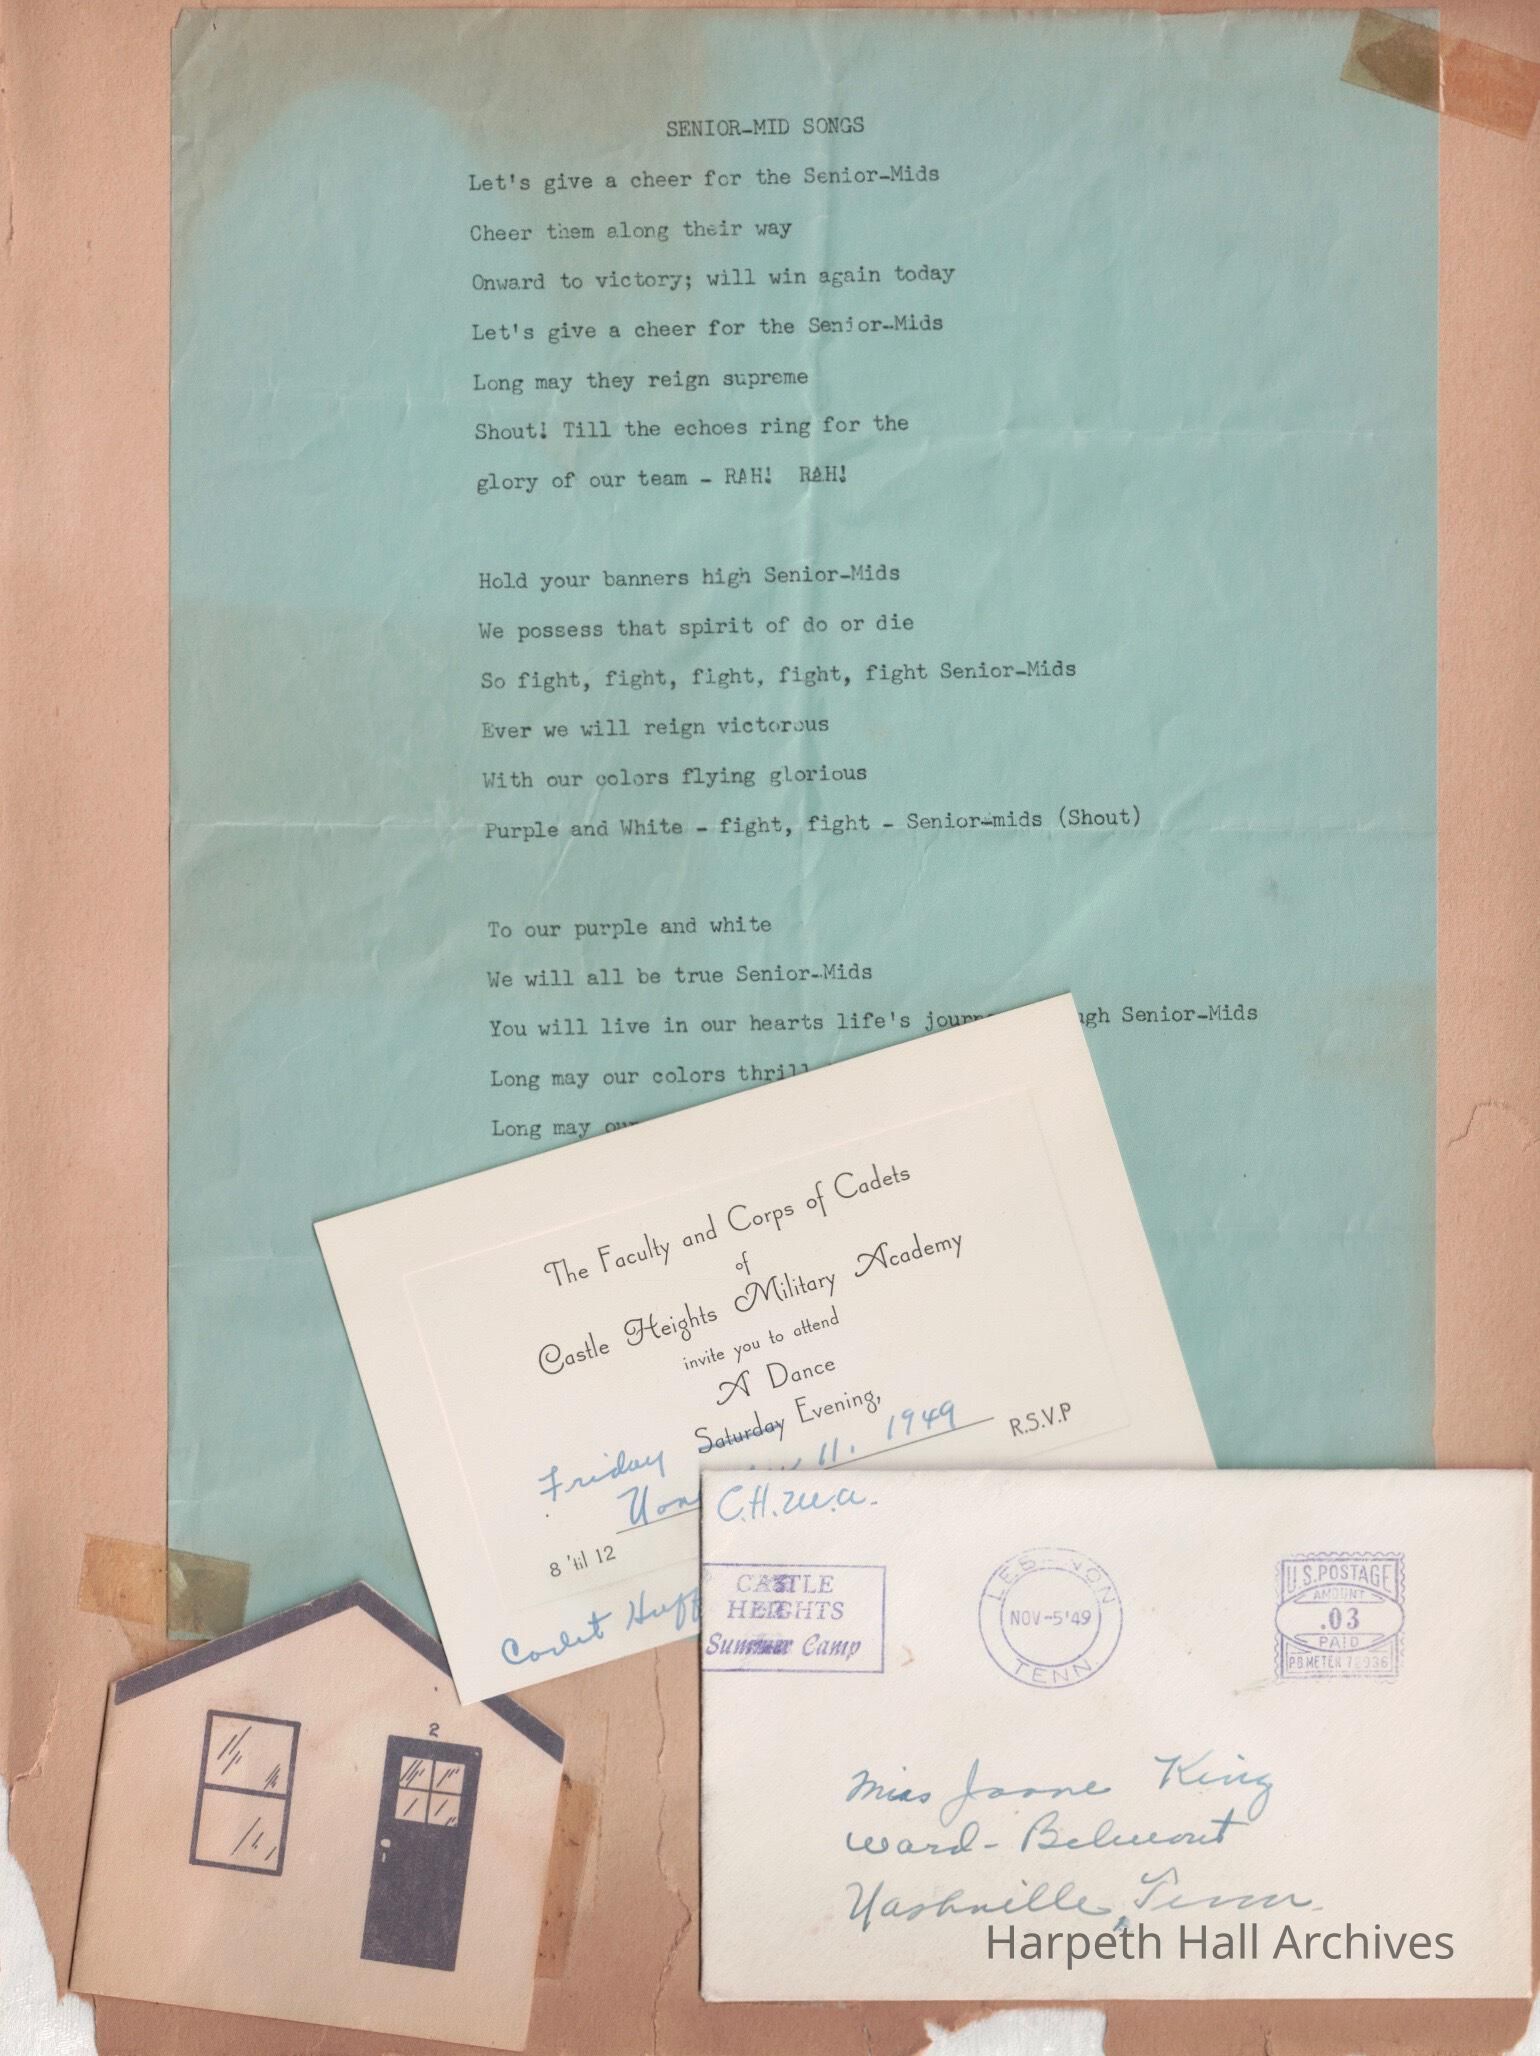 SENIOR-MID SONGS
Let's give a cheer for the Senior-Mids
Cheer them along their way
Onward to victory; will win again today
Let's give a cheer for the Senior-Mids
Long may they reign supreme
Shout! Till the echoes ring for the
glory of our team - RAH! RAH!
Hold your banners high Senior-Mids
We possess that spirit of do or die
So fight, fight, fight, fight, fight Senior-Mids
Ever we will reign victorous
With our colors flying glorious
Purple and White - fight, fight - Senior-mids (Shout)
To our purple and white
We will all be true Senior-Mids
You will live in our hearts life's Senior-Mids
Long may our colors thrill
Long may
The Faculty and Corps of Cadets
of
Castle Heights Military Academy
invite you to attend
A Dance
Friday Saturday Evening,
11. 1949 R.S.V.P
8 'til 12
Cadet Huff
C.H.M.A.
CASTLE
HEIGHTS
Summer Camp
LEBANON
NOV-5'49
TENN.
U.S. POSTAGE
AMOUNT
.03
PAID
PB METER 72936
2
Miss Joane King
Ward-Belmont
Nashville, Tenn.
Harpeth Hall Archives